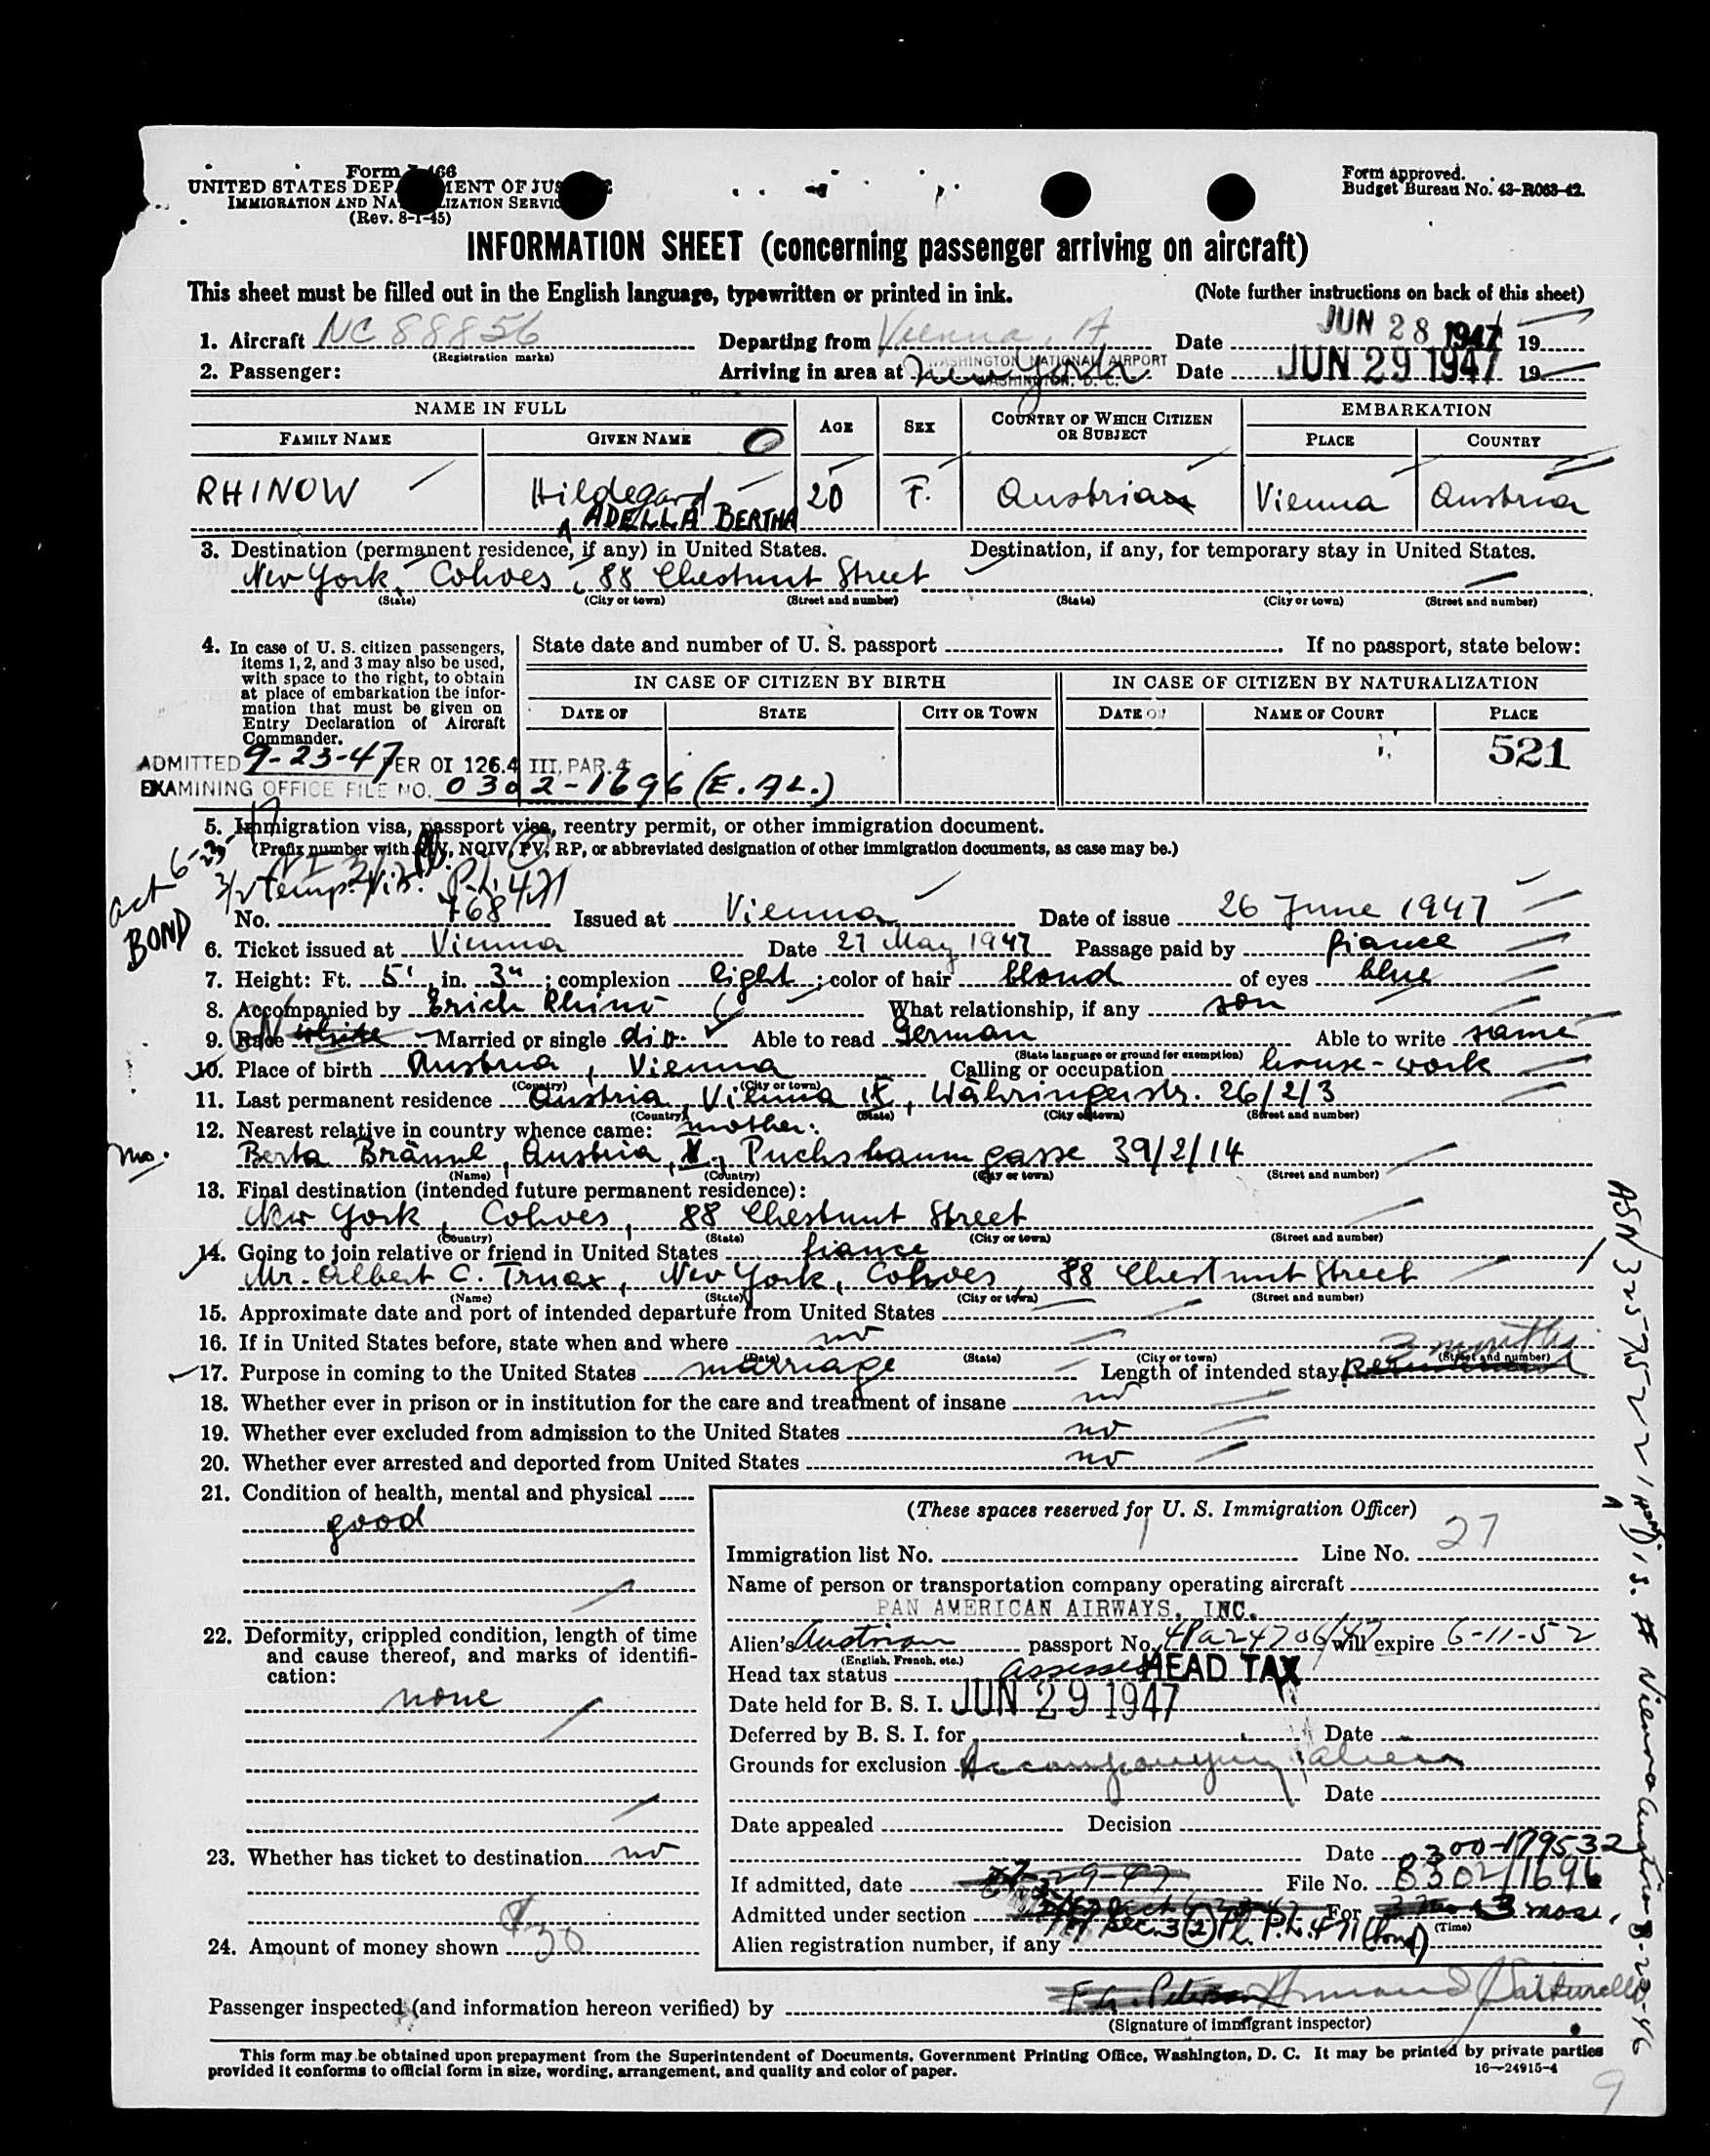 Form I-466
UNITED STATES DEPARTMENT OF JUSTICE
IMMIGRATION AND NATURALIZATION SERVICE
(Rev. 8-1-45)
Form approved.
Budget Bureau No. 43-R063-42.
INFORMATION SHEET (concerning passenger arriving on aircraft)
This sheet must be filled out in the English language, typewritten or printed in ink. (Note further instructions on back of this sheet)
1. Aircraft NC 88856 Departing from Vienna, A Date JUN 28 1947 19
(Registration marks)
2. Passenger: Arriving in area at New York WASHINGTON NATIONAL AIRPORT WASHINGTON, D. C. Date JUN 29 1947 19
NAME IN FULL AGE SEX COUNTRY OF WHICH CITIZEN OR SUBJECT EMBARKATION
FAMILY NAME GIVEN NAME PLACE COUNTRY
RHINOW Hildegard 20 F. Austrian Vienna Austria
ADELLA BERTHA
3. Destination (permanent residence, if any) in United States. Destination, if any, for temporary stay in United States.
New York, Cohoes, 88 Chestnut Street
(State) (City or town) (Street and number) (State) (City or town) (Street and number)
4. In case of U. S. citizen passengers, items 1, 2, and 3 may also be used, with space to the right, to obtain at place of embarkation the information that must be given on Entry Declaration of Aircraft Commander.
State date and number of U. S. passport If no passport, state below:
IN CASE OF CITIZEN BY BIRTH IN CASE OF CITIZEN BY NATURALIZATION
DATE OF STATE CITY OR TOWN DATE OF NAME OF COURT PLACE
521
ADMITTED 9-23-47 PER OI 126.4 III, PAR. 4
EXAMINING OFFICE FILE NO. 0302-1696 (E. AL.)
5. Immigration visa, passport visa, reentry permit, or other immigration document.
(Prefix number with QIV, NQIV, PV, RP, or abbreviated designation of other immigration documents, as case may be.)
3/2 Temp. Vis. P.L. 471
BOND
No. 768 Issued at Vienna Date of issue 26 June 1947
6. Ticket issued at Vienna Date 27 May 1947 Passage paid by fiance
7. Height: Ft. 5', in. 3"; complexion light; color of hair blond of eyes blue
8. Accompanied by Erich Rhino What relationship, if any son
9. Race white Married or single div. Able to read German Able to write same
(State language or ground for exemption)
10. Place of birth Austria, Vienna Calling or occupation house-work
(Country) (City or town)
11. Last permanent residence Austria, Vienna IX, Währingerstr. 26/2/3
(Country) (State) (City or town) (Street and number)
12. Nearest relative in country whence came: mother:
mo.
Berta Bräunl, Austria, X., Puchsbaumgasse 39/2/14
(Name) (Country) (City or town) (Street and number)
13. Final destination (intended future permanent residence):
New York, Cohoes, 88 Chestnut Street
(Country) (State) (City or town) (Street and number)
14. Going to join relative or friend in United States fiance
Mr. Albert C. Truax, New York, Cohoes, 88 Chestnut Street
(Name) (State) (City or town) (Street and number)
15. Approximate date and port of intended departure from United States
16. If in United States before, state when and where no
(Date) (State) (City or town) (Street and number)
3 months
17. Purpose in coming to the United States marriage Length of intended stay
18. Whether ever in prison or in institution for the care and treatment of insane no
19. Whether ever excluded from admission to the United States no
20. Whether ever arrested and deported from United States no
21. Condition of health, mental and physical
good
22. Deformity, crippled condition, length of time and cause thereof, and marks of identification:
none
23. Whether has ticket to destination no
24. Amount of money shown $30
(These spaces reserved for U. S. Immigration Officer)
Immigration list No. 1 Line No. 27
Name of person or transportation company operating aircraft
PAN AMERICAN AIRWAYS, INC.
Alien's Austrian passport No. 4Pa24706/47 will expire 6-11-52
(English, French, etc.)
Head tax status assessed HEAD TAX
Date held for B. S. I. JUN 29 1947
Deferred by B. S. I. for Date
Grounds for exclusion Accompanying alien
Date
Date appealed Decision
Date 300-179532
If admitted, date File No. 8302/1696
Admitted under section For 3 mos.
Sec. 3(2) P.L. 471 (bond) (Time)
Alien registration number, if any
Passenger inspected (and information hereon verified) by
(Signature of immigrant inspector)
This form may be obtained upon prepayment from the Superintendent of Documents, Government Printing Office, Washington, D. C. It may be printed by private parties
provided it conforms to official form in size, wording, arrangement, and quality and color of paper. 16—24915-4
9